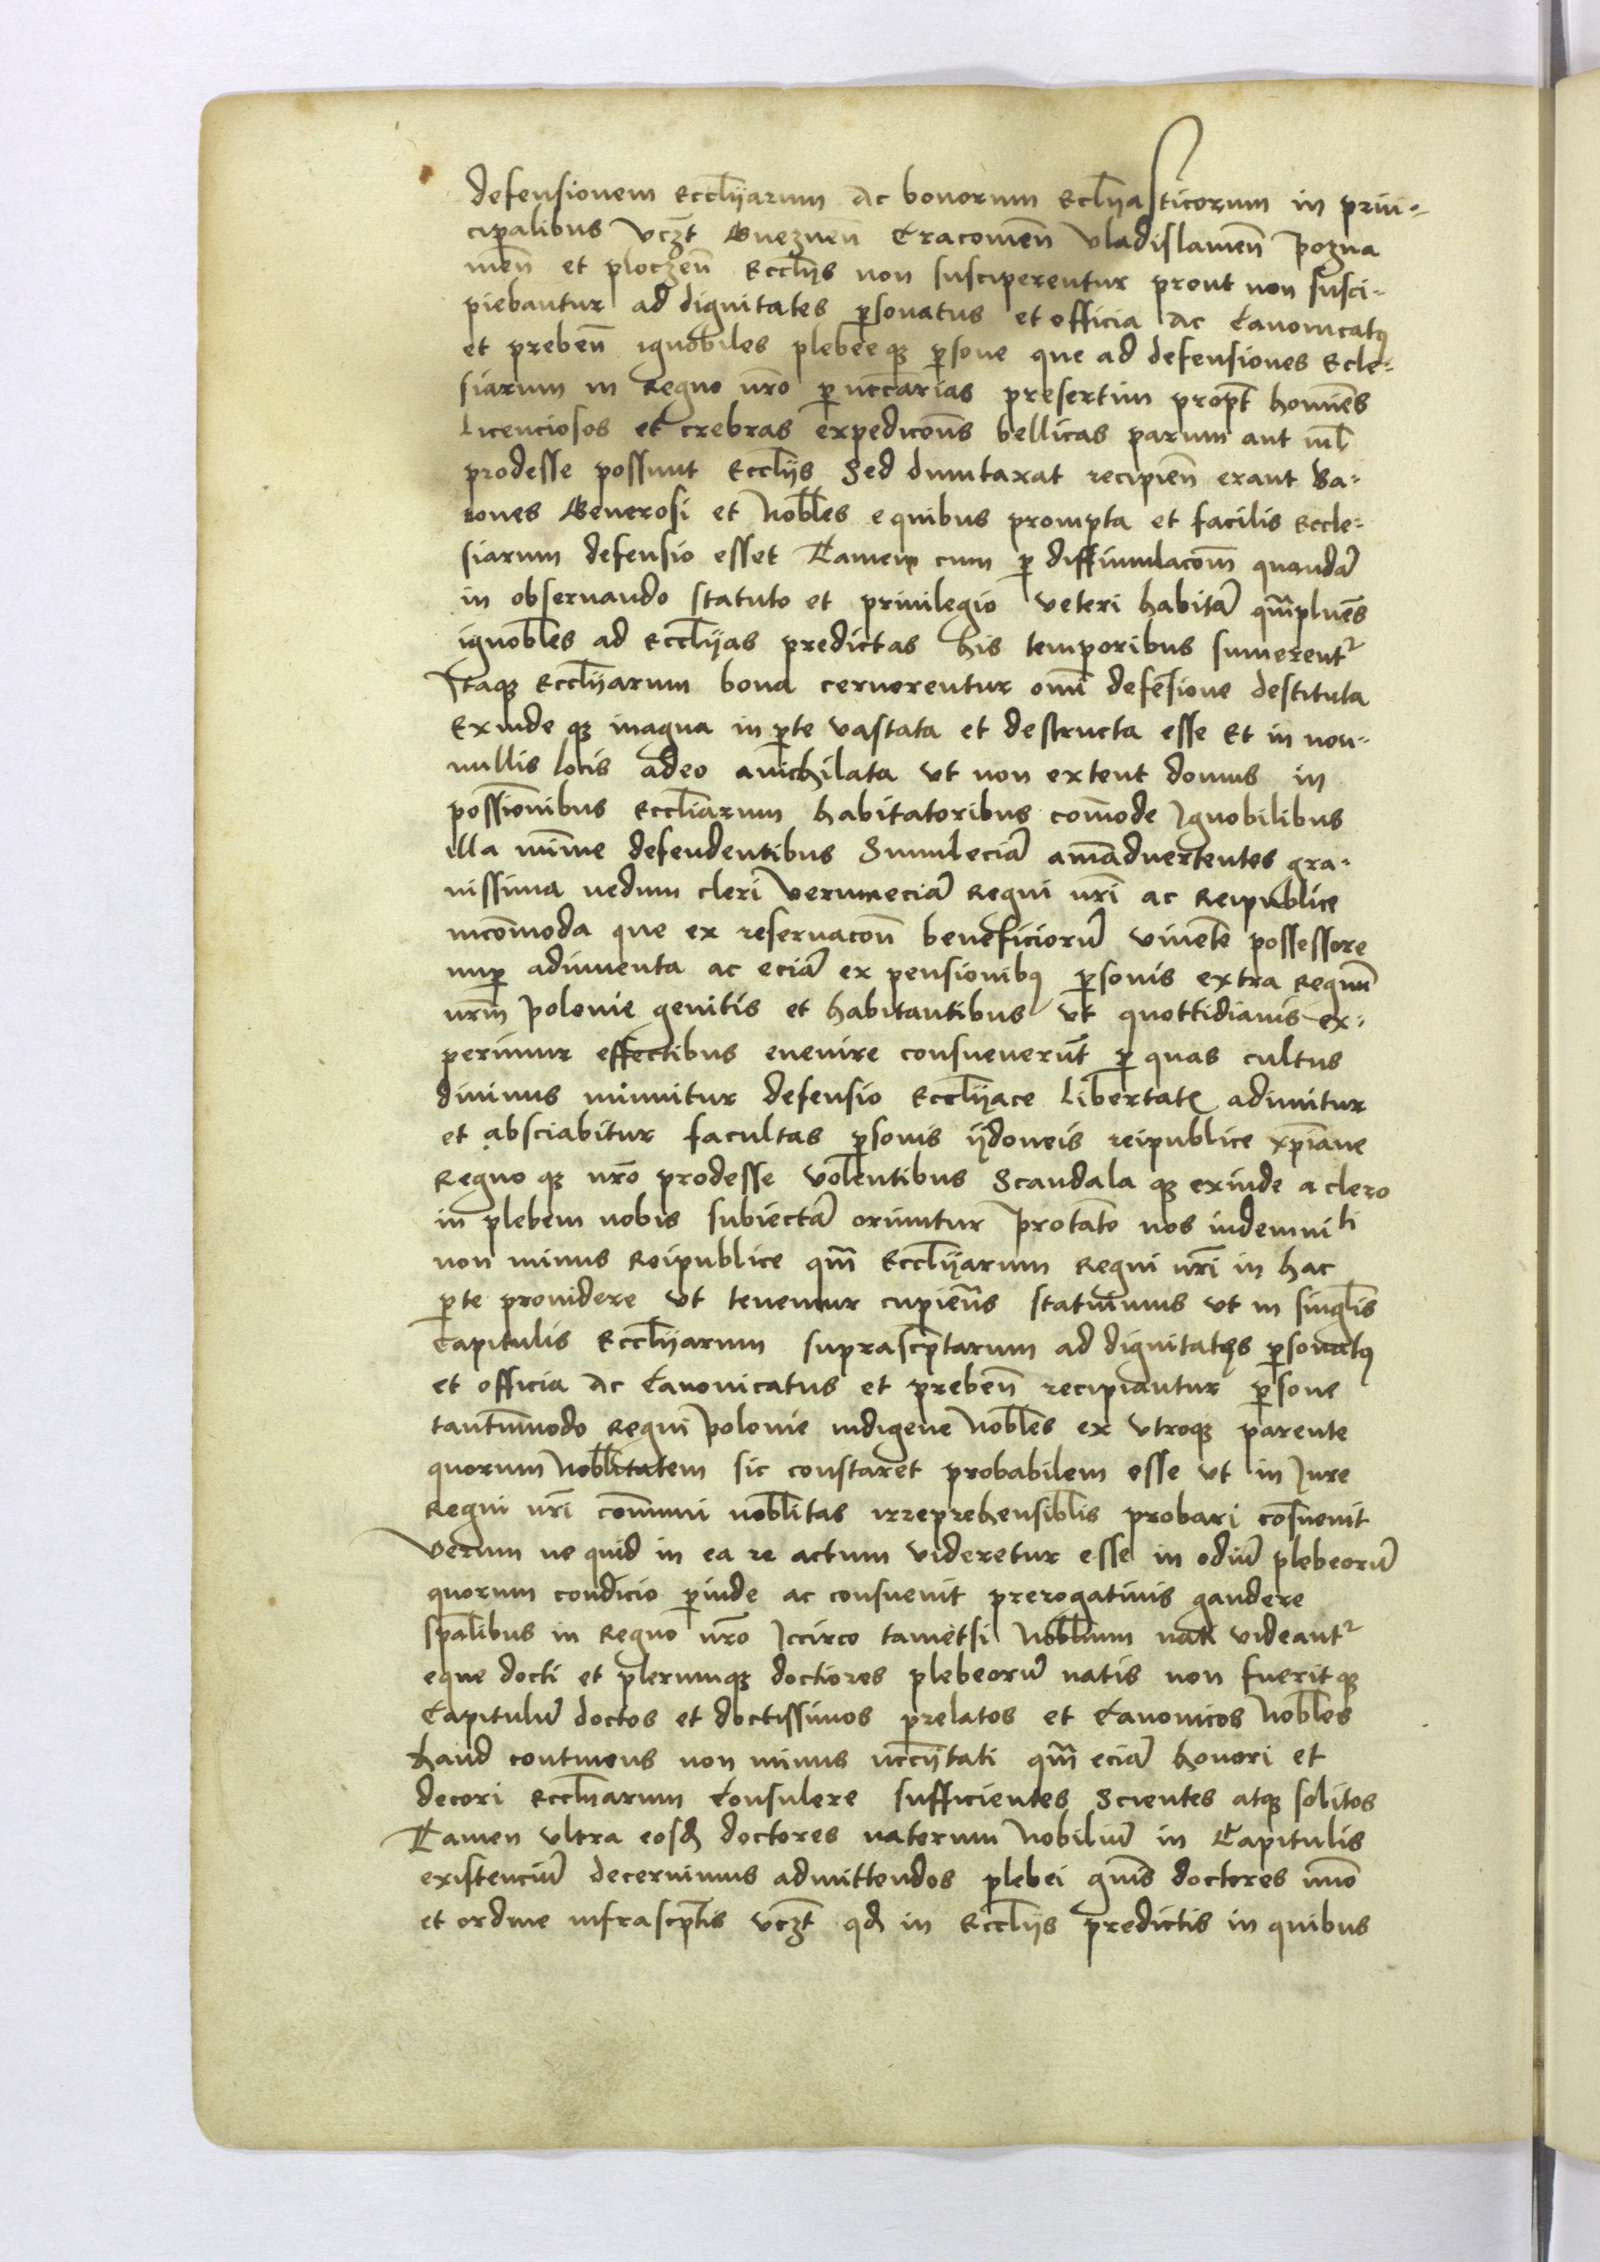 defensionem Eccliarum Ac bonorum Ecliasticorum in prin-
cipalibus vczt Gneznen̄ Cracouien̄ Vladislauien̄ Pozna
nien̄ et ploczen̄ Ecclijs non susciperentur prout non susci-
piebantur ad dignitates psonatus et officia Ac Canonicatꝯ
et preben̄ ignobiles plebeeqꝫ psone que ad defensiones Eccle-
siarum in Regno nr̄o p nccarias presertim propt homines
licenciosos et crebras expedicōns bellicas parum aut nil
prodesse possunt Ecclijs Sed dumtaxat recipien̄ erant Ba-
rones Generosi et Nobles e quibus prompta et facilis Eccle-
siarum defensio esset Tamen cum p dissimulacōm quandā
in obseruando statuto et priuilegio veteri habitā qmplures
ignobles ad Ecclijas predictas his temporibus sumerent
Itaqꝫ Ecclijarum bona cernerentur omi defensione destituta
Exinde qꝫ magna in pte vastata et destructa esse Et in non-
nullis locis adeo anichilata vt non extent domus in
possionibus Eccliarum habitatoribus comode Ignobilibus
illa minime defendentibus Simul eciā aīmaduertentes gra-
uissima nedum cleri verumeciā Regni nr̄i ac Reipublice
incōmoda que ex reseruacōn beneficiorū viuente possessore
nup adinuenta ac eciā ex pensionibꝯ psonis extra Regnū
nrm Polonie genitis et habitantibus vt quottidianis ex-
perimur effectibus euenire consueuerūt p quas cultus
diuinus minuitur defensio Ecclijace libertatꝭ adimitur
et absciabitur facultas psonis ijdoneis reipublice xp̄iane
Regno qꝫ nr̄o prodesse volentibus Scandala qꝫ exinde a clero
in plebem nobis subiectā oriuntur Protanto nos indemni ti
non minus Reipublice qm̄ Ecclijarum Regni nr̄i in hac
pte prouidere vt tenemur cupien̄s statuimus vt in singlis
Capitulis Ecclijarum suprascptarum ad dignitates psonatꝯ
et officia Ac Canonicatus et preben̄ recipiantur psone
tantūmodo Regni Polonie indigene Nobles ex vtroqꝫ parente
quorum Noblitatem sic constaret probabilem esse vt in Jure
Regni nr̄i cōmuni noblitas irreprehensiblis probari cōsueuit
Verum ne quid in ea re actum videretur esse in odiū plebeorū
quorum condicio pinde ac consueuit prerogatiuis gaudere
spālibus in Regno nr̄o Iccirco tametsi Noblium nati videant
eque docti et plerumqꝫ doctiores plebeorū natis non fueritqꝫ
Capitulū doctos et doctissimos prelatos et Canonicos Nobles
haud continens non minus nccijtati qm̄ eciā honori et
decori Eccliarum Consulere sufficientes Scientes atqꝫ solitos
Tamen vltra eosd doctores natorum Nobiliū in Capitulis
existenciū decernimus admittendos plebei gn̄is doctores mō
et ordine infrascptis vczt qd in Ecclijs predictis in quibus